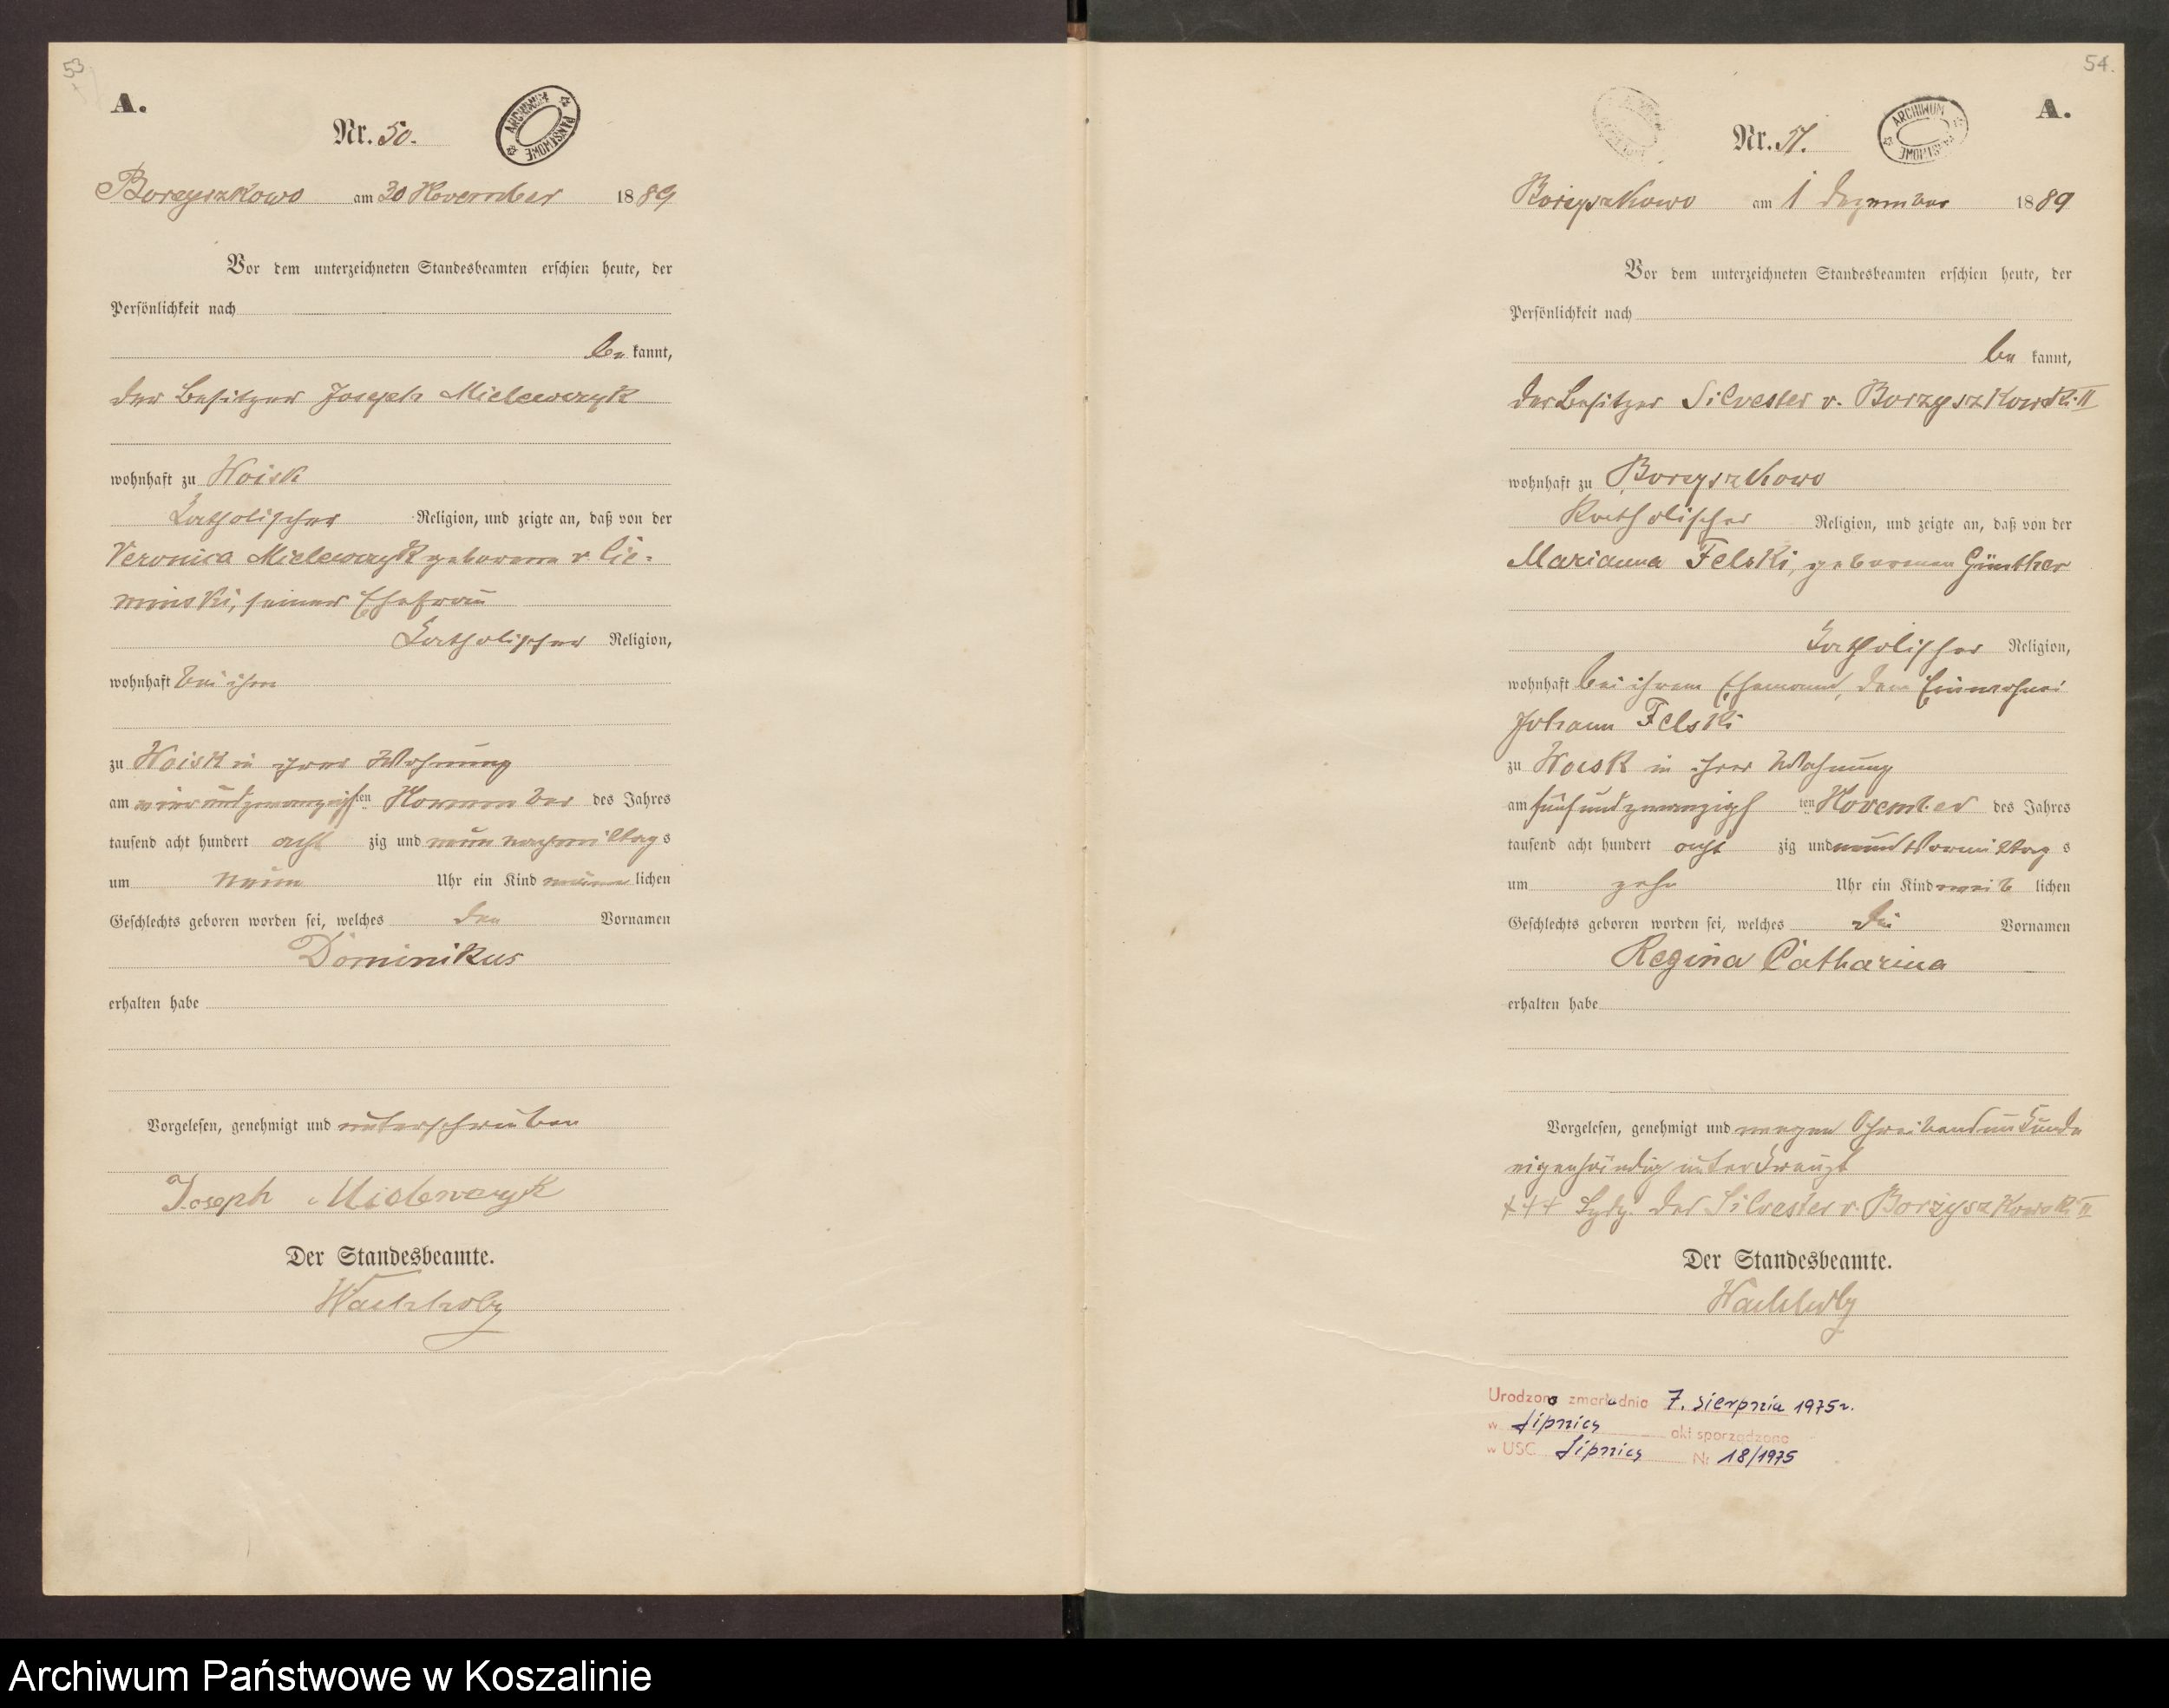 53
A.
Nr. 50.
ARCHIWUM PAŃSTWOWE
Borzyszkowo am 30 November 1889
Vor dem unterzeichneten Standesbeamten erschien heute, der
Persönlichkeit nach
be kannt,
der Besitzer Joseph Mielewczyk
wohnhaft zu Woisk
katholischer Religion, und zeigte an, daß von der
Veronica Mielewczyk geborene v. Cie-
minski, seiner Ehefrau
katholischer Religion,
wohnhaft bei ihm
zu Woisk in ihrer Wohnung
am vierundzwanzigsten November des Jahres
tausend acht hundert acht zig und neun nachmittags
um neun Uhr ein Kind männ lichen
Geschlechts geboren worden sei, welches den Vornamen
Dominikus
erhalten habe
Vorgelesen, genehmigt und unterschrieben
Joseph Mielewczyk
Der Standesbeamte.
Wachholz
54.
A.
Nr. 51.
ARCHIWUM PAŃSTWOWE
Borzyszkowo am 1 Dezember 1889
Vor dem unterzeichneten Standesbeamten erschien heute, der
Persönlichkeit nach
be kannt,
der Besitzer Silvester v. Borzyszkowski II
wohnhaft zu Borzyszkowo
katholischer Religion, und zeigte an, daß von der
Marianna Felski, geborenen Günther
katholischer Religion,
wohnhaft bei ihrem Ehemann, dem Einwohner
Johann Felski
zu Woisk in ihrer Wohnung
am fünfundzwanzigs ten November des Jahres
tausend acht hundert acht zig und neun Vormittag s
um zehn Uhr ein Kind weib lichen
Geschlechts geboren worden sei, welches die Vornamen
Regina Catharina
erhalten habe
Vorgelesen, genehmigt und wegen Schreibensunkunde
eigenhändig unterkreuzt
+++ der Silvester v. Borzyszkowski II
Der Standesbeamte.
Wachholz
Urodzona zmarła dnia 7. sierpnia 1975 r.
w Lipnicy akt sporządzono
w USC Lipnicy Nr 18/1975
Archiwum Państwowe w Koszalinie